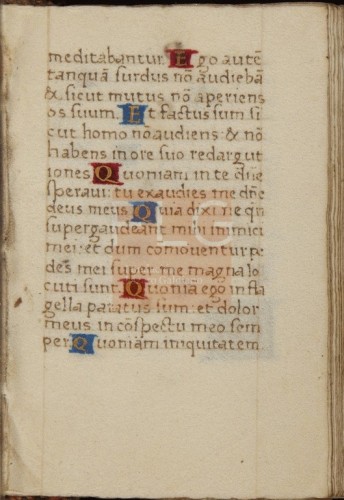 meditabantur. Ego autē
tanquā surdus nō audiebā
& sicut mutus nō aperiens
os suum. Et factus sum si
cut homo nō audiens: & nō
habens in ore suo redargut
iones. Quoniam in te dñe
speravi: tu exaudies me dñe
deus meus. Quia dixi: ne qñ
supergaudeant mihi inimici
mei: et dum comoventur pe
des mei super me magna lo
cuti sunt. Quoniā ego in fla
gella paratus sum: et dolor
meus in cōspectu meo sem
per. Quoniam iniquitatem